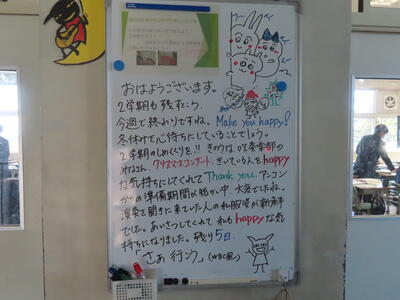 おはようございます。
2学期も残すところ、
今週で終わりですね。
Make you happy!
冬休みを心待ちにしていることでしょう。
2学期のしめくくりを!! きのうは、吹奏楽部の
みなさん、クリスマスコンサート、きいている人をhappy
な気持ちにしてくれて Thank you. アンコン
からの準備期間が短い中 大変でしたね。
演奏を聞きに来ていた人の私服姿が新鮮
でした。あいさつしてくれて 私もhappyな気
持ちになりました。残り5日。
「さあ 行こう」(WBC風)